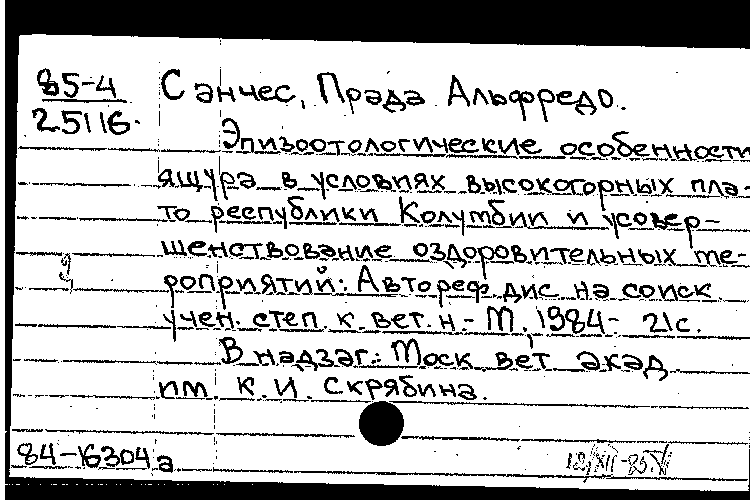 85-4
25116.
Санчес, Прада Альфредо.
Эпизоотологические особенности
ящура в условиях высокогорных пла-
то республики Колумбии и усовер-
шенствование оздоровительных ме-
роприятий: Автореф дис на соиск.
учен. степ. к. вет. н. - М., 1984 - 21с.
В надзаг.: Моск вет акад
им. К. И. Скрябина.
84-16304а